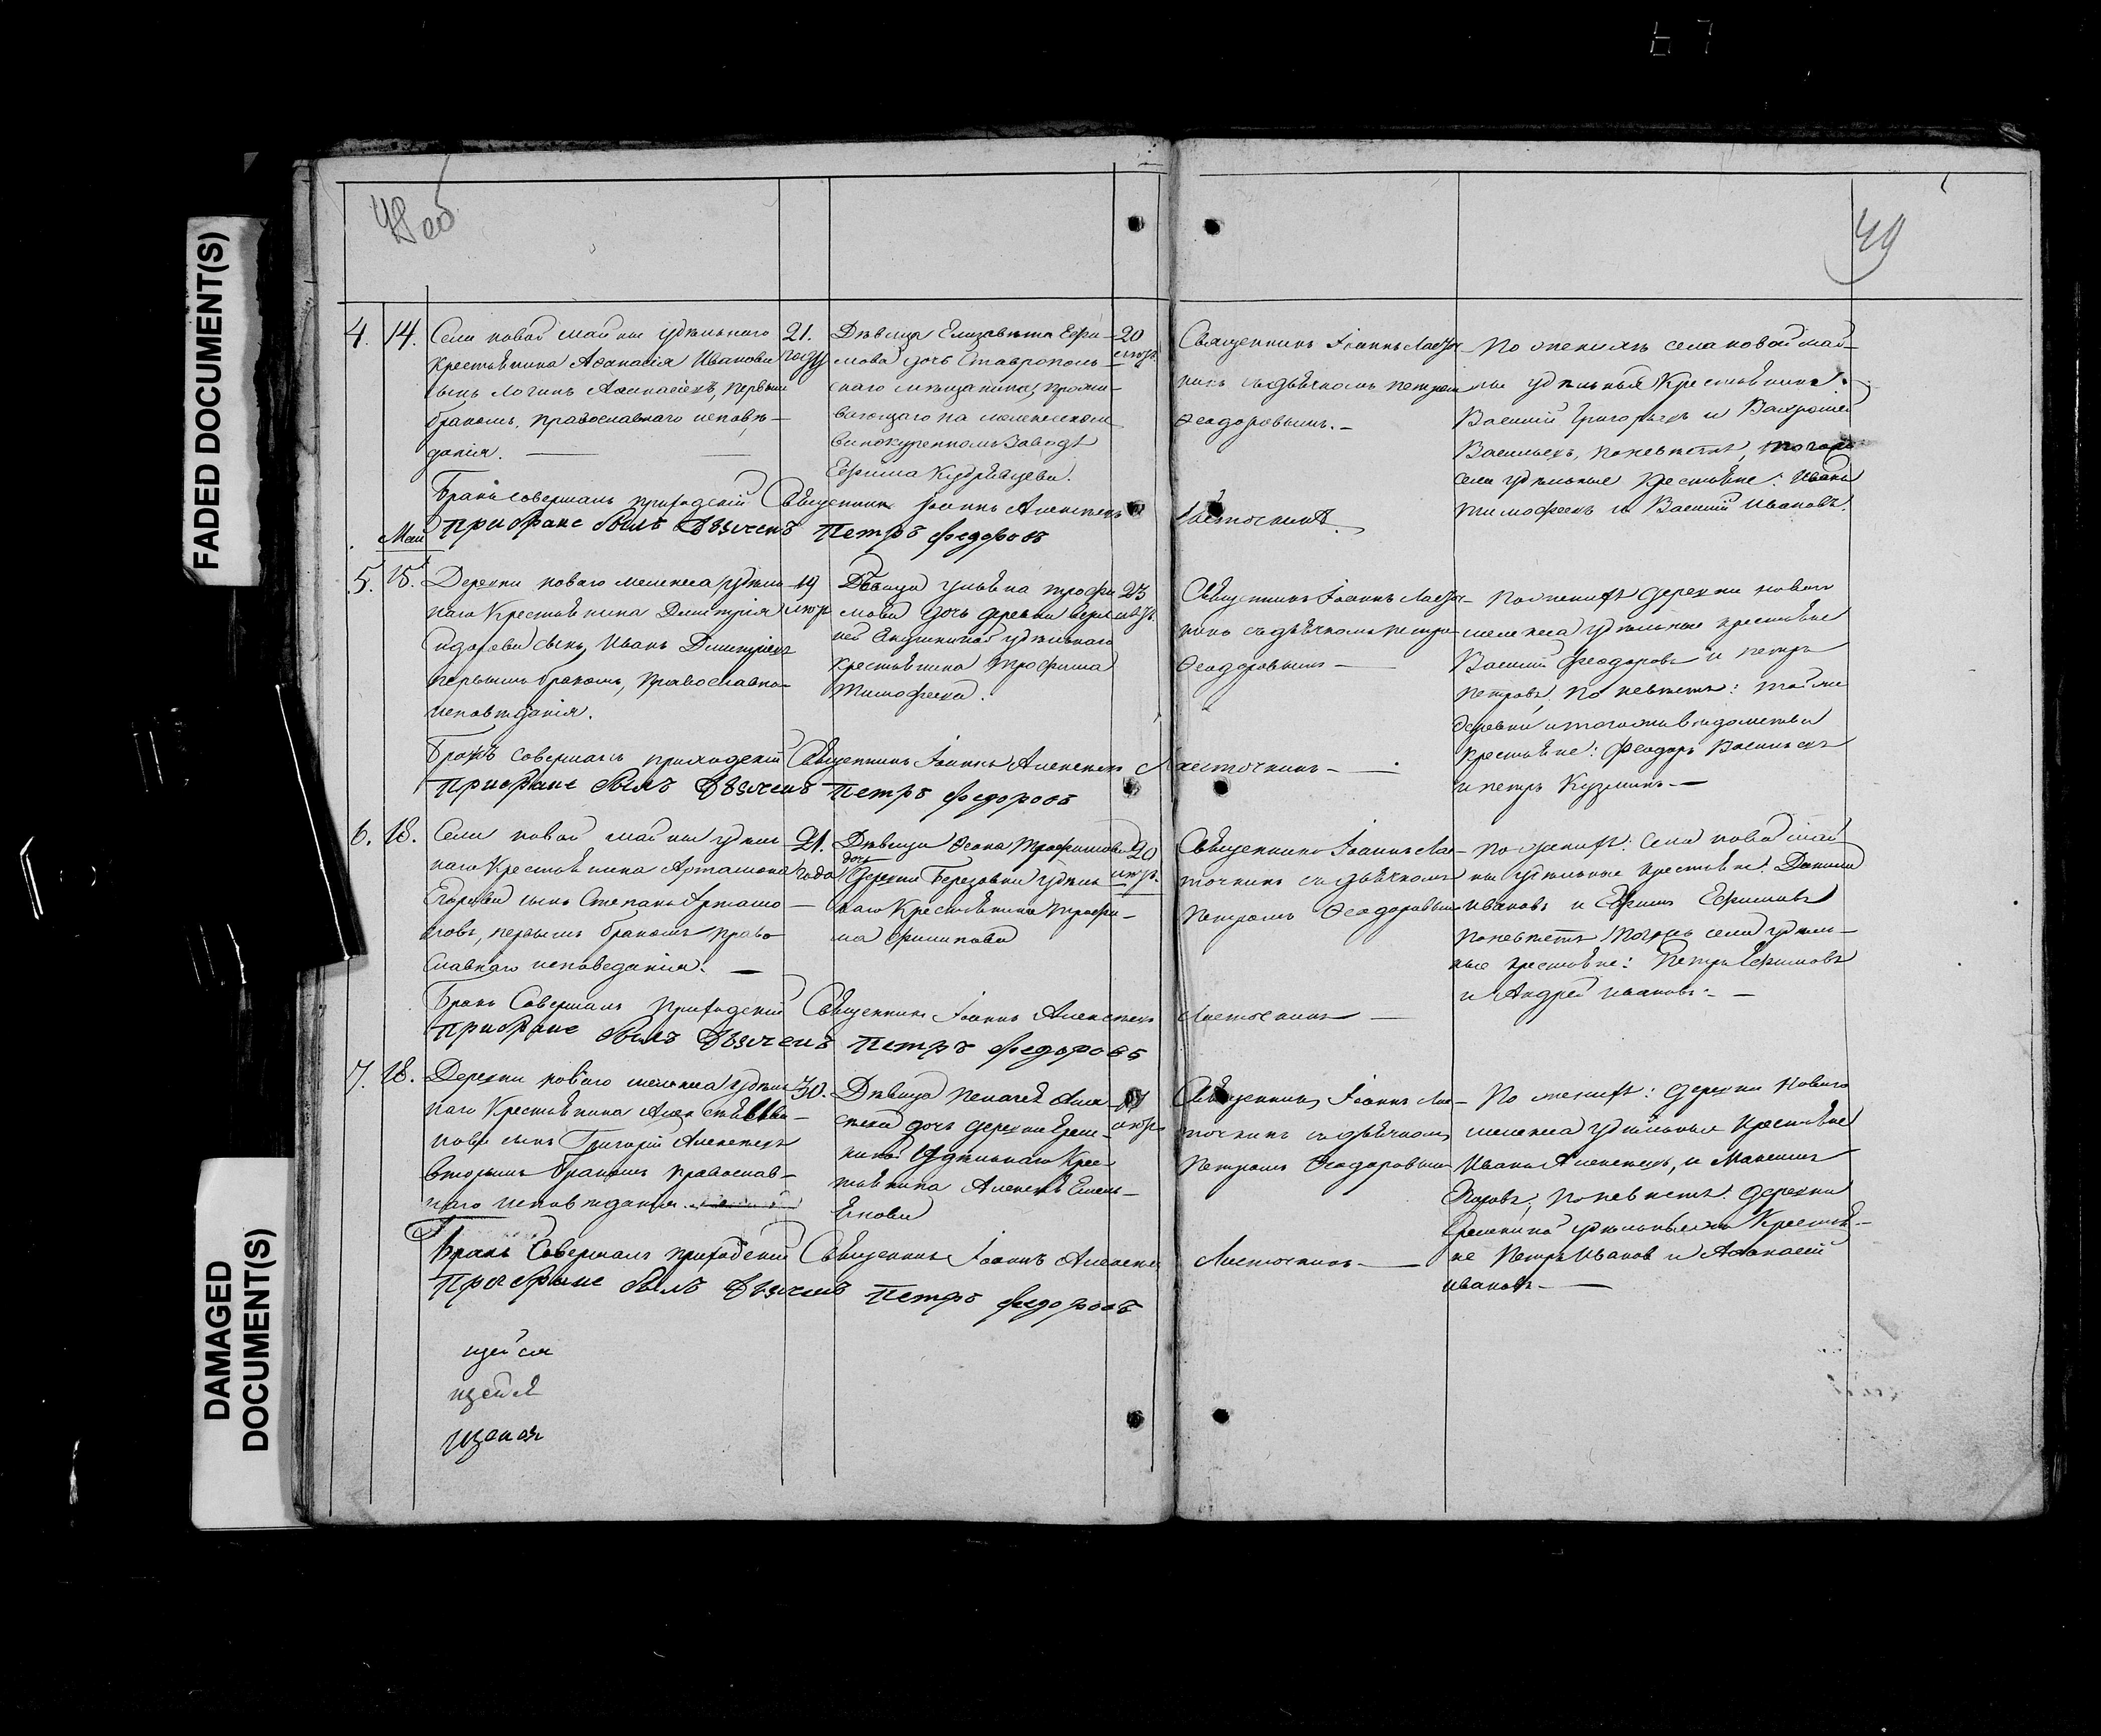 FADED DOCUMENT(S)
DAMAGED
DOCUMENT(S)
48 об
49
4. 14. Села новой майны удѣльнаго
крестьянина Аѳанасія Иванова
сынъ Логинъ Аѳанасіевъ, первымъ
бракомъ, православнаго исповѣ-
данія.
21.
году
Дѣвица Елизавета Ефи-
мова дочь Ставрополь-
скаго мѣщанина, прожи-
вающаго на мелекесскомъ
винокуренномъ заводѣ
Ефима Кудрявцева.
20
Священникъ Іоаннъ Ласто-
чкинъ съ дьячкомъ петромъ
Ѳеодоровымъ.-
По женихѣ села новой май-
ны удѣльныя крестьяне:
Василій Григорьевъ и
Васильевъ, по невѣстѣ, тогожъ
села удѣльные крестьяне: Иванъ
тимофеевъ и Василій Ивановъ.
Бракъ совершалъ приходскій Священникъ Іоаннъ Алексѣевъ Ласточкинъ.
При браке былъ дьячекъ Петръ федоровъ
Маія
5. 15. Деревни новаго мелекеса удѣль-
наго крестьянина Димитрія
Сидорова сынъ, Иванъ Димитріевъ
первымъ бракомъ, православна-
исповѣданія.
19
Дѣвица Ульяна трофи-
мова дочь деревни верх-
ней удѣльнаго
крестьянина трофима
Тимофеева.
23
Священникъ Іоаннъ Ласто-
чкинъ съ дьячкомъ петро-
Ѳеодоровымъ
По женихѣ деревни новаго
мелекеса удѣльные крестьяне
Василій Феодоровъ и петръ
петровъ, по невѣстѣ: той же
деревни и тогожъ вѣдомства
крестьяне: Феодоръ Васильевъ
и петръ Кузминъ
Бракъ совершалъ приходскій Священникъ Іоаннъ Алексѣевъ Ласточкинъ
При браке былъ дьячекъ петръ федоровъ
6. 18. Села новой майны удѣль-
наго крестьянина Артамона
Егорова сынъ Степанъ Артамо-
новъ, первымъ бракомъ право-
славнаго исповеданія.
21.
года
Дѣвица Ѳеона Трофимова
дочь
деревни Березовки удѣль-
наго крестьянина трофи-
ма филипова
20
Священникъ Іоаннъ Лас-
точкинъ съ дьячкомъ
Петромъ Ѳеодоровымъ
По женихѣ: села новой май-
ны удѣльные крестьяне: Данило
Ивановъ и Ефимъ Ефимовъ
по невѣстѣ тогожъ села удѣль-
ные крестьяне: Петръ Ефимовъ
и Андрей ивановъ.
Бракъ Совершалъ приходскій Священникъ Іоаннъ Алексѣевъ Ласточкинъ
При браке былъ дьячекъ петръ федоровъ
7. 18. Деревни новаго мелекеса удѣль-
наго крестьянина Алексѣя
сынъ Григорій Алексѣевъ
вторымъ бракомъ православ-
наго исповѣданія.
30.
Дѣвица Пелагея Алек-
сѣева дочь деревни Ерем-
киной удѣльнаго крес-
тьянина Алексѣя Емель-
янова
Священникъ Іоаннъ Лас-
точкинъ съ дьячкомъ
Петромъ Ѳеодоровымъ
По женихѣ: деревни Новаго
мелекеса удѣльные крестьяне
Иванъ Алексѣевъ, и Максимъ
Егоровъ, по невѣстѣ: деревни
Еремкиной удѣльные крестья-
не Петръ Иванов и Аѳанасій
ивановъ
Бракъ Совершалъ приходскій Священникъ Іоаннъ Алексѣевъ Ласточкинъ
При браке былъ дьячекъ петръ федоровъ